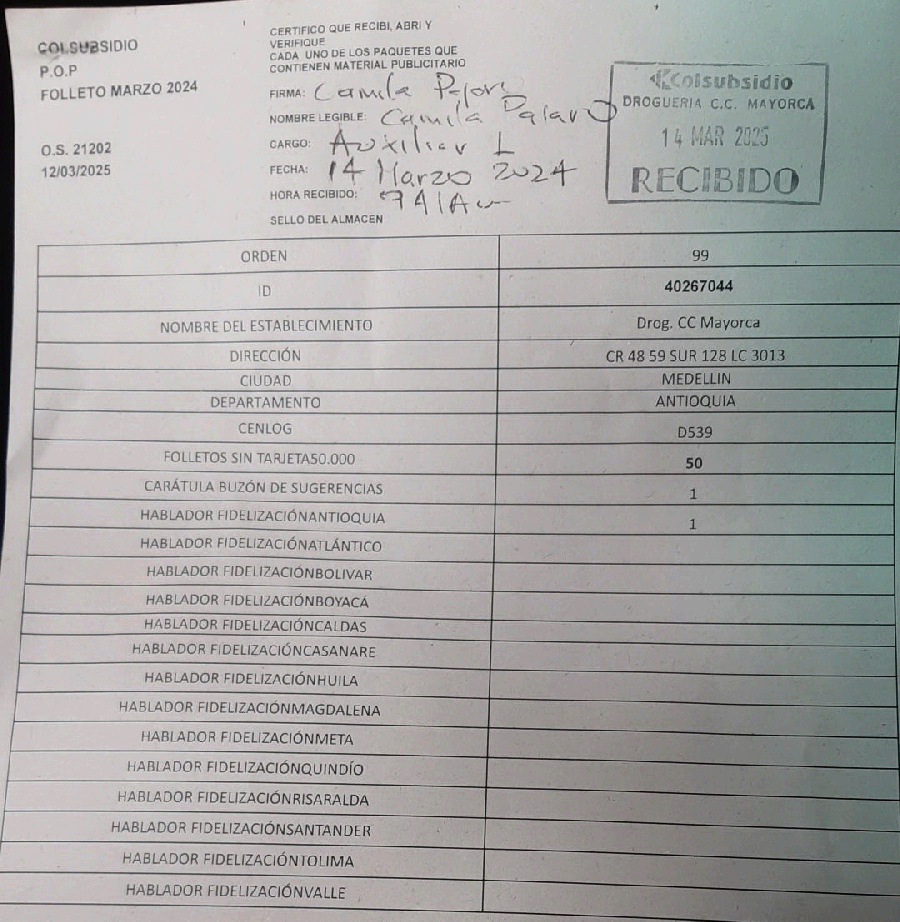 COLSUBSIDIO
P.O.P
FOLLETO MARZO 2024
O.S. 21202
12/03/2025
CERTIFICO QUE RECIBI, ABRI Y
VERIFIQUE
CADA UNO DE LOS PAQUETES QUE
CONTIENEN MATERIAL PUBLICITARIO
FIRMA: Camila
NOMBRE LEGIBLE: Camila
CARGO: Auxiliar I
FECHA: 14 Marzo 2024
HORA RECIBIDO:
SELLO DEL ALMACEN
Colsubsidio
DROGUERIA C.C. MAYORCA
14 MAR 2025
RECIBIDO
ORDEN 99
ID 40267044
NOMBRE DEL ESTABLECIMIENTO Drog. CC Mayorca
DIRECCIÓN CR 48 59 SUR 128 LC 3013
CIUDAD MEDELLIN
DEPARTAMENTO ANTIOQUIA
CENLOG D539
FOLLETOS SIN TARJETA50.000 50
CARÁTULA BUZÓN DE SUGERENCIAS 1
HABLADOR FIDELIZACIÓNANTIOQUIA 1
HABLADOR FIDELIZACIÓNATLÁNTICO
HABLADOR FIDELIZACIÓNBOLIVAR
HABLADOR FIDELIZACIÓNBOYACÁ
HABLADOR FIDELIZACIÓNCALDAS
HABLADOR FIDELIZACIÓNCASANARE
HABLADOR FIDELIZACIÓNHUILA
HABLADOR FIDELIZACIÓNMAGDALENA
HABLADOR FIDELIZACIÓNMETA
HABLADOR FIDELIZACIÓNQUINDÍO
HABLADOR FIDELIZACIÓNRISARALDA
HABLADOR FIDELIZACIÓNSANTANDER
HABLADOR FIDELIZACIÓNTOLIMA
HABLADOR FIDELIZACIÓNVALLE